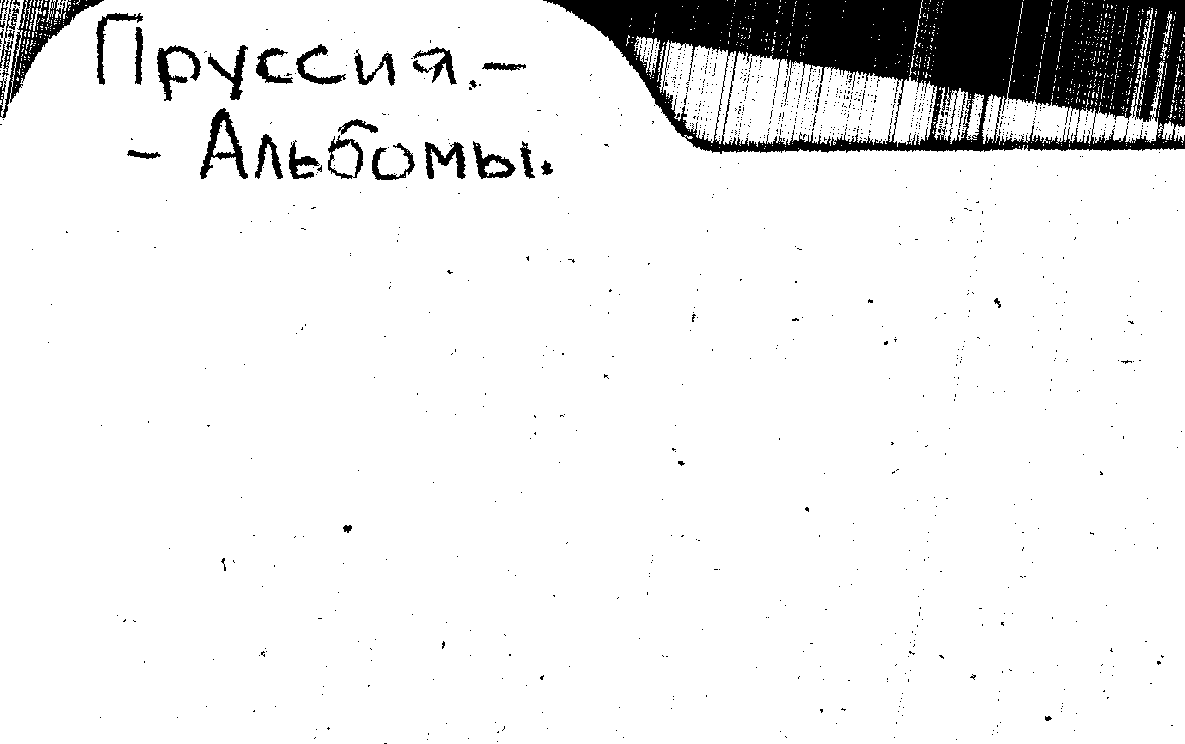 Пруссия.-
- Альбомы.